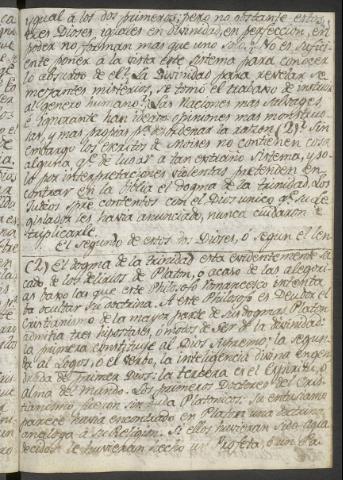 igual à los dos primeros; pero no obstante estos
tres Dioses, iguales en Divinidad, en perfeccion, en
poder no forman mas que uno solo. Y No es sufici-
ente poner à la vista este sistema para conocer
lo absurdo de el? La Divinidad para revelar se-
mejantes misterios, se tomó el trabajo de instruir
al genero humano? Las Naciones mas salvages,
è ignorante han opiniones mas monstruo-
sas, y mas propias pª desordenar la razon (2)? Sin
embargo los escritos de Moises no contienen cosa
alguna, qe de lugar a tan extraño sistema, y so-
lo por interpretaciones violentas pretenden en-
contrar en la biblia el dogma de la trinidad. Los
Judios spre contentos con el Dios unico qe su Le-
gislador les havia anunciado, nunca cuidaron de
triplicarle.
El segundo de estos Dioses, ó segun el len-
(2.) El dogma de la trinidad esta evidentemente sa-
cado de los delirios de Platon, ó acaso de las alegori-
as baxo las que este Philosofo Romancesco intenta
ba ocultar su doctrina. A este Philosofo es Deudor el
Cristianismo de la mayor parte de sus dogmas. Platon
admitia tres hipostases, ó modos de ser de la divinidad:
la primera constituye al Dios supremo; la segun-
da al Logos, ó el Verbo, la inteligencia divina engen-
drada del Primer Dios; la tercera es el Espiritu, ó
alma del mundo. Los primeros Doctores del Cris-
tianismo fueron sin duda Platonicos. Su entusiasmo
parece havia encontrado en Platon una doctrina
analoga à su Religion. Si ellos huvieran sido agra-
decidos le huvieran hecho un Profeta, ó un Pa-